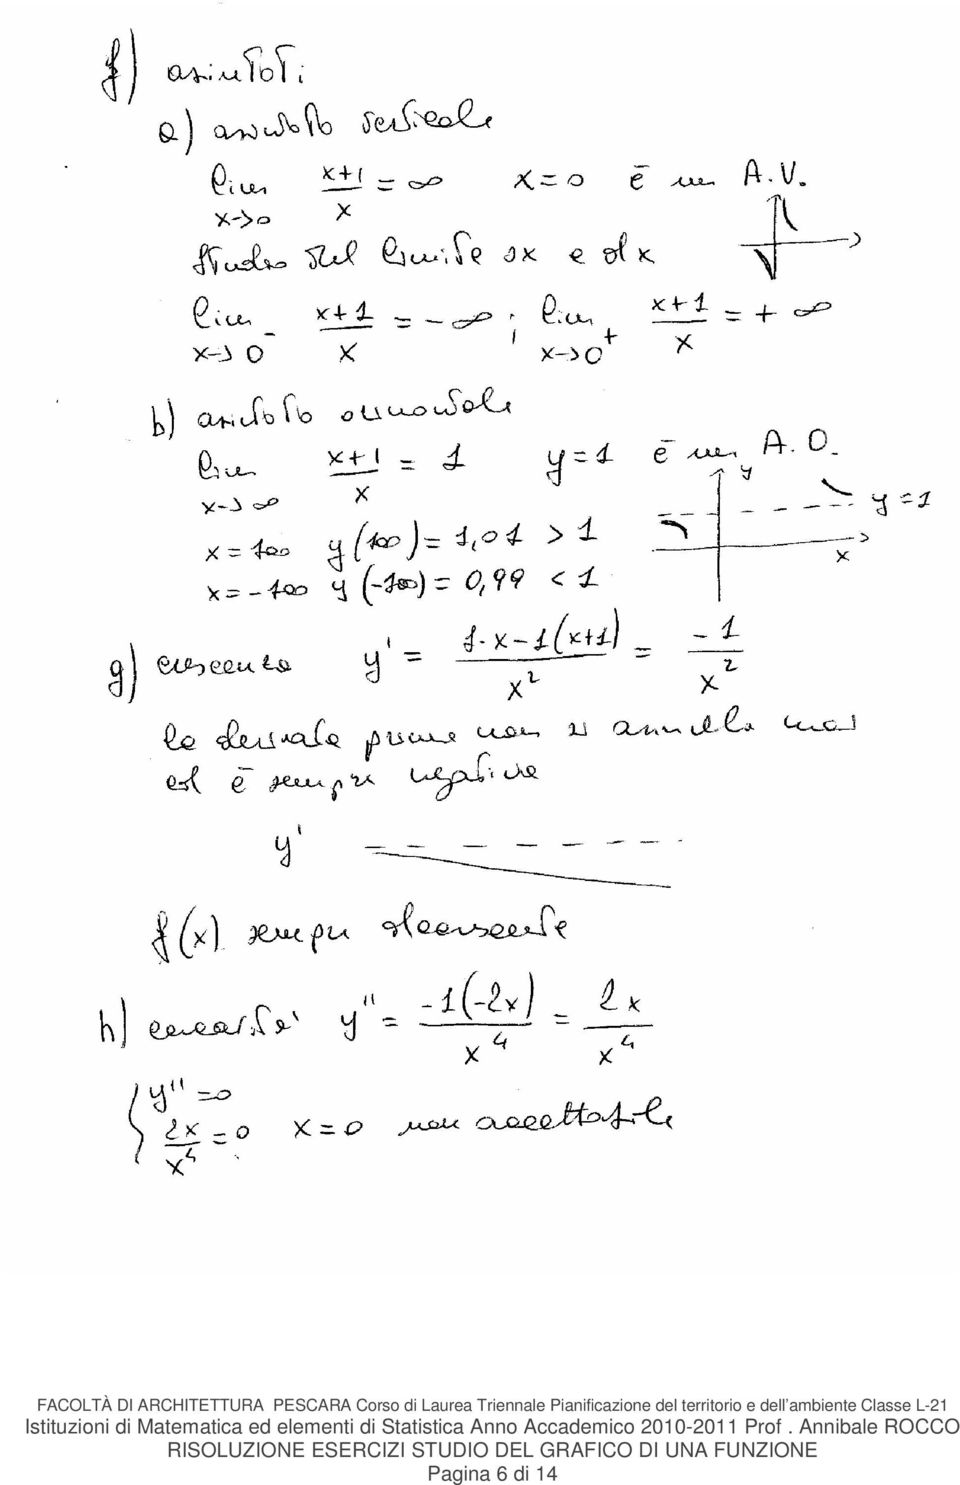 f) asintoti
a) asintoto verticale
lim x→0 x+1/x = ∞ x=0 è un A.V.
studio del limite sx e dx
lim x→0⁻ x+1/x = -∞ ; lim x→0⁺ x+1/x = +∞
b) asintoto orizzontale
lim x→∞ x+1/x = 1 y=1 è un A.O.
y
y=1
x=100 y(100)=1,01 > 1
x
x=-100 y(-100)=0,99 < 1
g) crescenza y' = 1·x-1(x+1)/x² = -1/x²
la derivata prima non si annulla mai
ed è sempre negativa
y'
f(x) sempre decrescente
h) concavità y'' = -1(-2x)/x⁴ = 2x/x⁴
y''=0
2x/x⁴ = 0 x=0 non accettabile
FACOLTÀ DI ARCHITETTURA PESCARA Corso di Laurea Triennale Pianificazione del territorio e dell'ambiente Classe L-21
Istituzioni di Matematica ed elementi di Statistica Anno Accademico 2010-2011 Prof. Annibale ROCCO
RISOLUZIONE ESERCIZI STUDIO DEL GRAFICO DI UNA FUNZIONE
Pagina 6 di 14